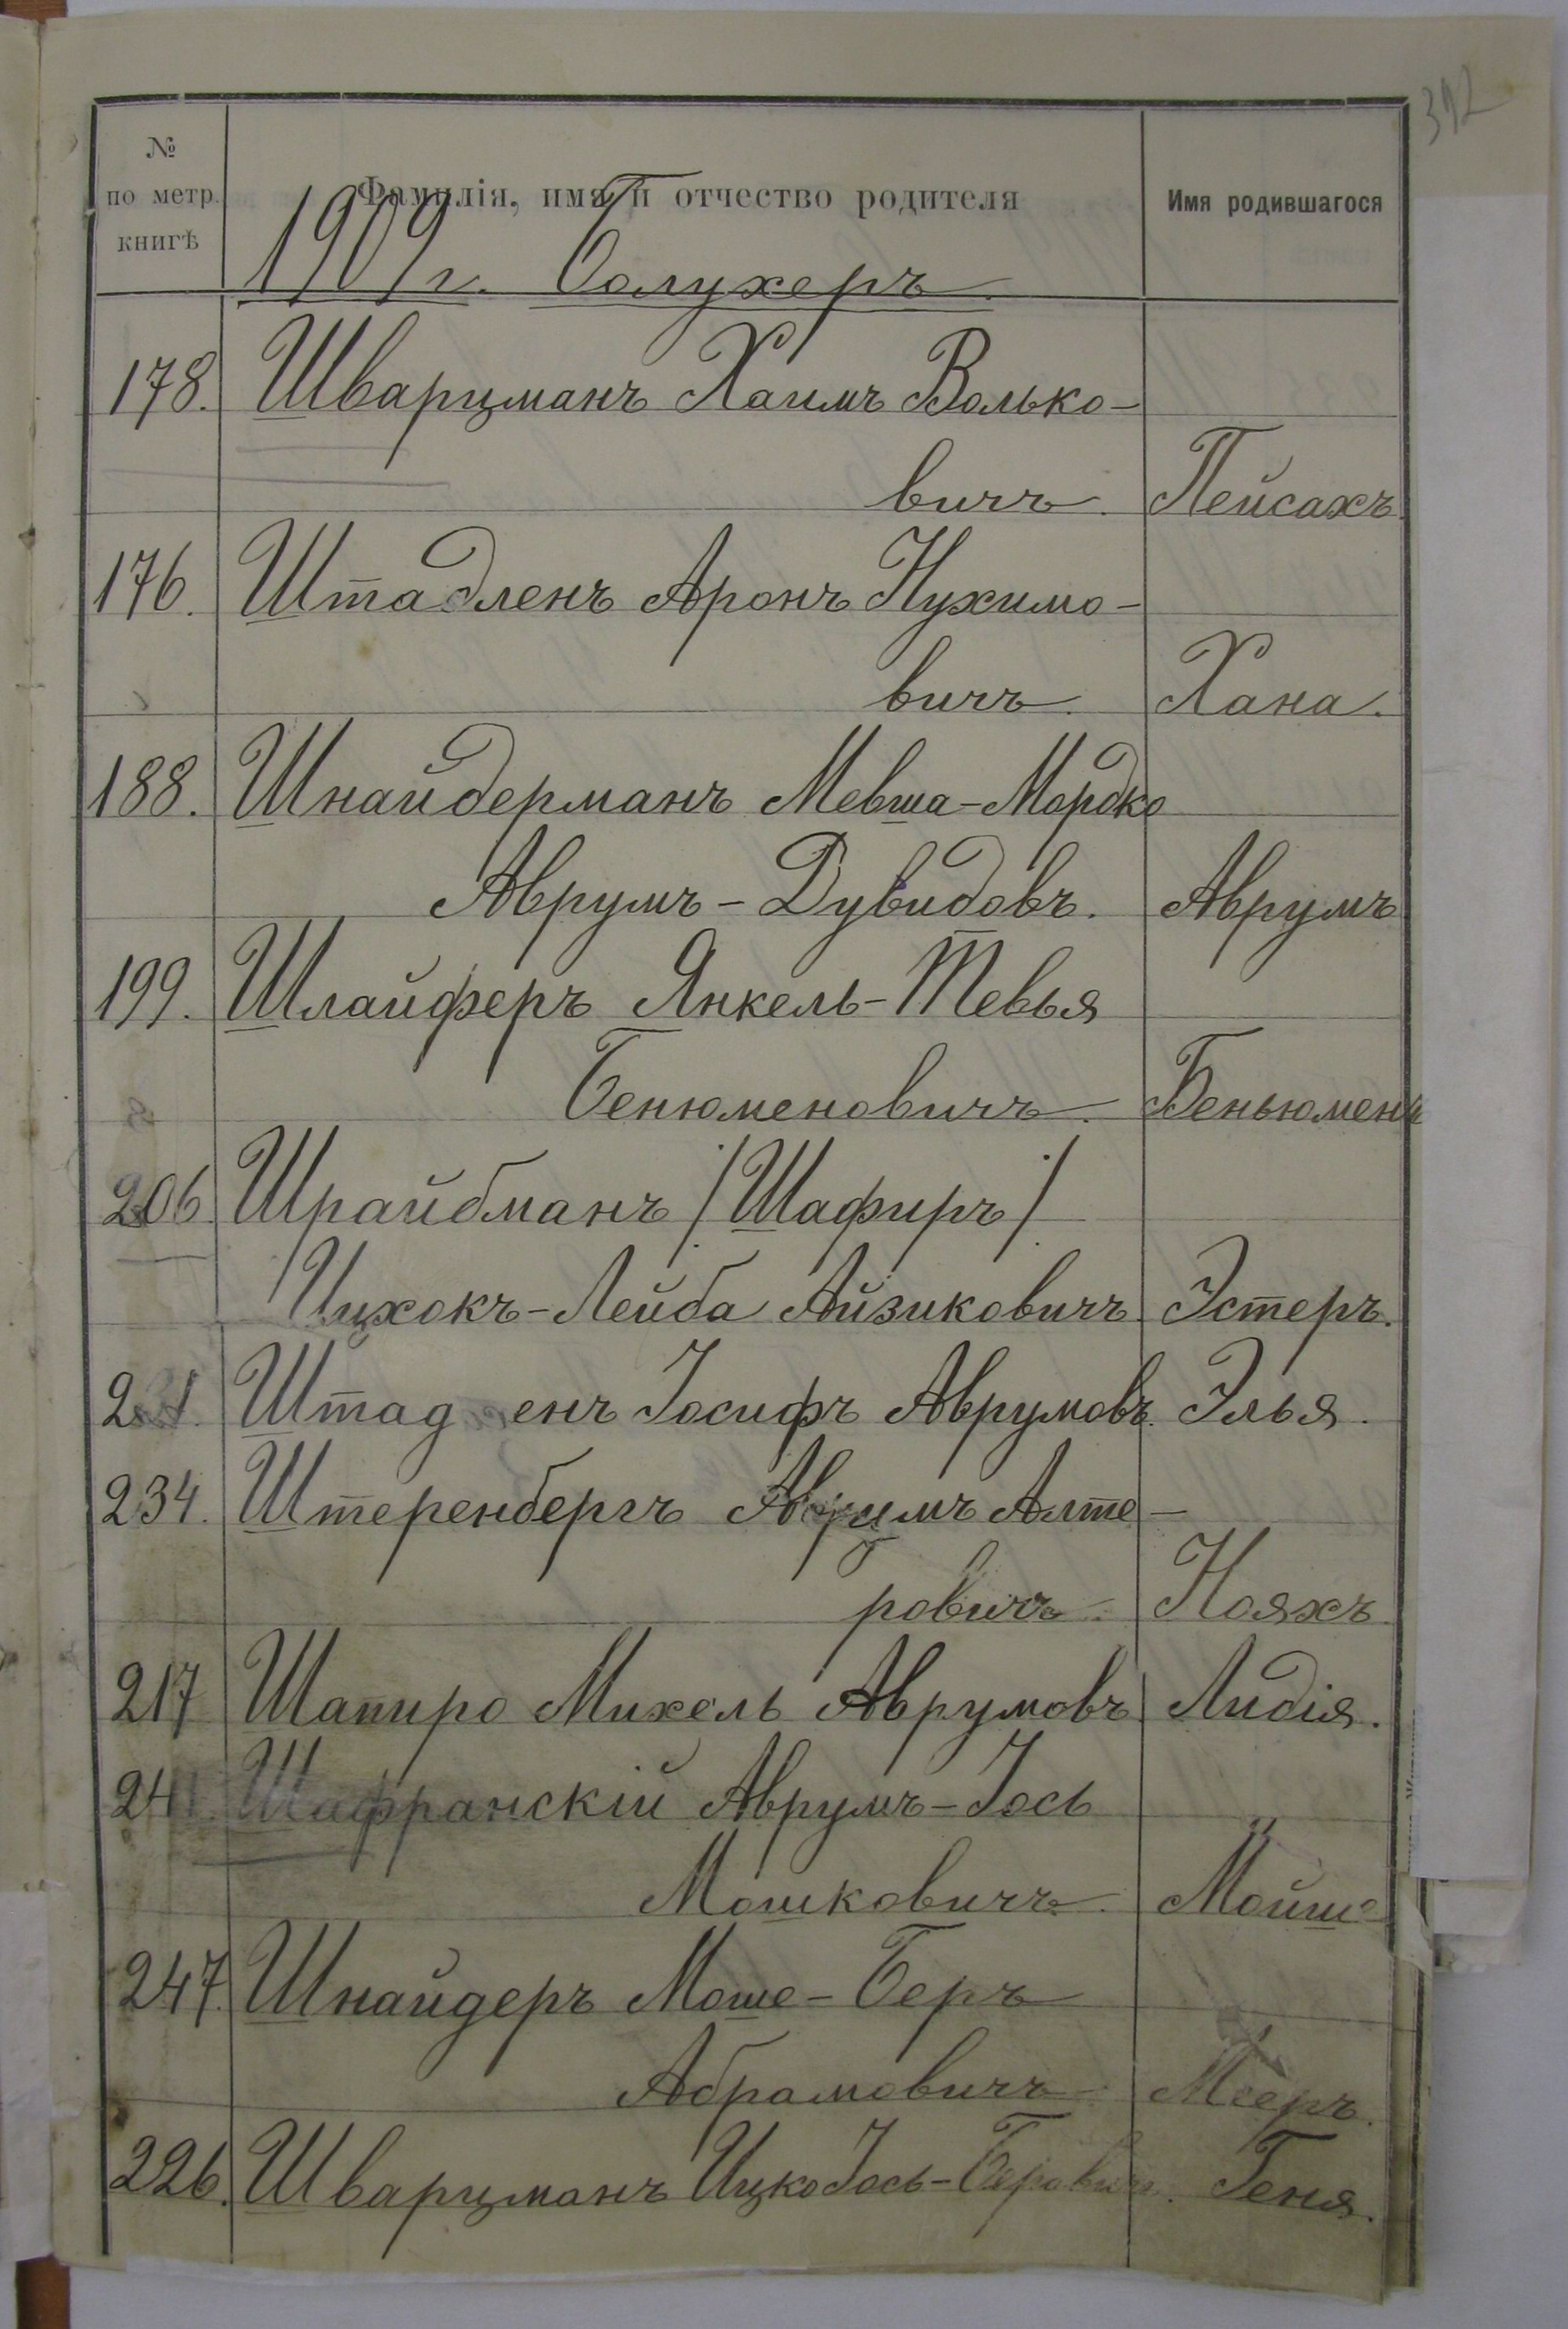 392
№ по метр. книгѣ
Фамилія, имя и отчество родителя
Имя родившагося
1909 г. Болухеръ
178. Шварцманъ Хаимъ Волько-
вичъ. Пейсахъ.
176. Штадленъ Аронъ Нухимо-
вичъ. Хана.
188. Шнайдерманъ Мевша-Мордко
Аврумъ-Дувидовъ. Аврумъ
199. Шлайферъ Янкель-Тевья
Бенюменовичъ. Беньюменъ
206. Шрайбманъ /Шафиръ/
Ицхокъ-Лейба Айзиковичъ. Эстеръ.
Штад енъ Іосифъ Аврумовъ. Элья.
234. Штеренбергъ Аврумъ Алте-
ровичъ. Нояхъ
217 Шапиро Михель Аврумовъ Лидія.
Шафранскій Аврумъ-Іось
Мошковичъ. Мойше
247. Шнайдеръ Моше-Беръ
Абрамовичъ Мееръ.
226. Шварцманъ Ицко Іось-Беровичъ. Геня.